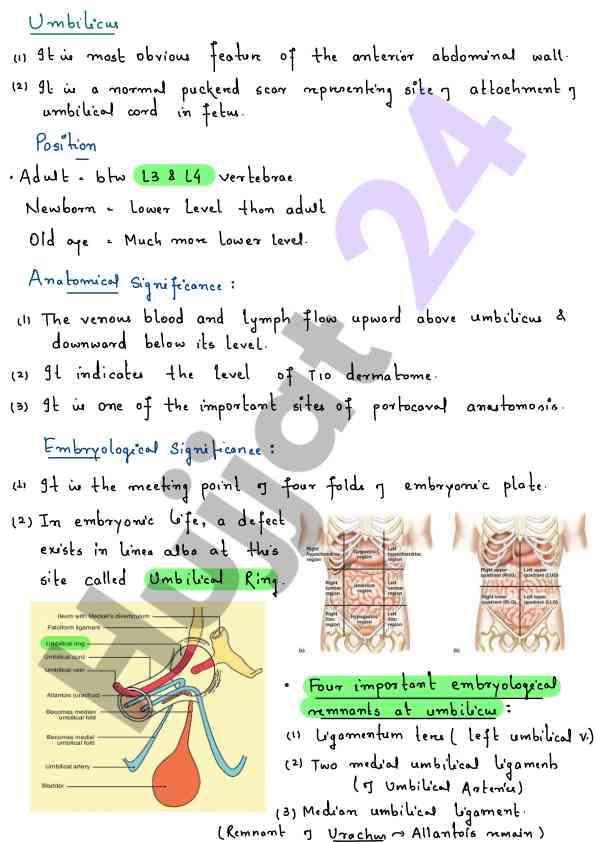 Umbilicus
(1) It is most obvious feature of the anterior abdominal wall.
(2) It is a normal puckered scar representing site of attachment of
umbilical cord in fetus.
Position
· Adult = btw L3 & L4 vertebrae
Newborn = Lower Level than adult
Old age = Much more lower level.
Anatomical Significance :
(1) The venous blood and lymph flow upward above umbilicus &
downward below its level.
(2) It indicates the level of T10 dermatome.
(3) It is one of the important sites of portocaval anastomosis.
Embryological Significance :
(1) It is the meeting point of four folds of embryonic plate.
(2) In embryonic life, a defect
exists in linea alba at this
site called Umbilical Ring.
Right hypochondriac region
Epigastric region
Left hypochondriac region
Right lumbar region
Umbilical region
Left lumbar region
Right iliac region
Hypogastric region
Left iliac region
(a)
Right upper quadrant (RUQ)
Left upper quadrant (LUQ)
Right lower quadrant (RLQ)
Left lower quadrant (LLQ)
(b)
Ileum with Meckel's diverticulum
Falciform ligament
Umbilical ring
Umbilical cord
Umbilical vein
Allantois (urachus)
Becomes median
umbilical fold
Becomes medial
umbilical fold
Umbilical artery
Bladder
· Four important embryological
remnants at umbilicus :
(1) Ligamentum teres ( left umbilical v.)
(2) Two medial umbilical ligaments
( of Umbilical Arteries)
(3) Median umbilical ligament.
(Remnant of Urachus → Allantois remain)
Hujjat 24